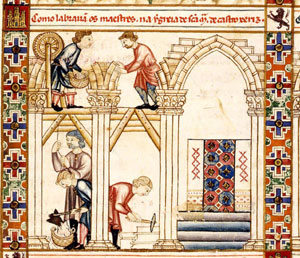 Como labrauan os maestres . na ygreia de sca m̃. de castro xeriz.